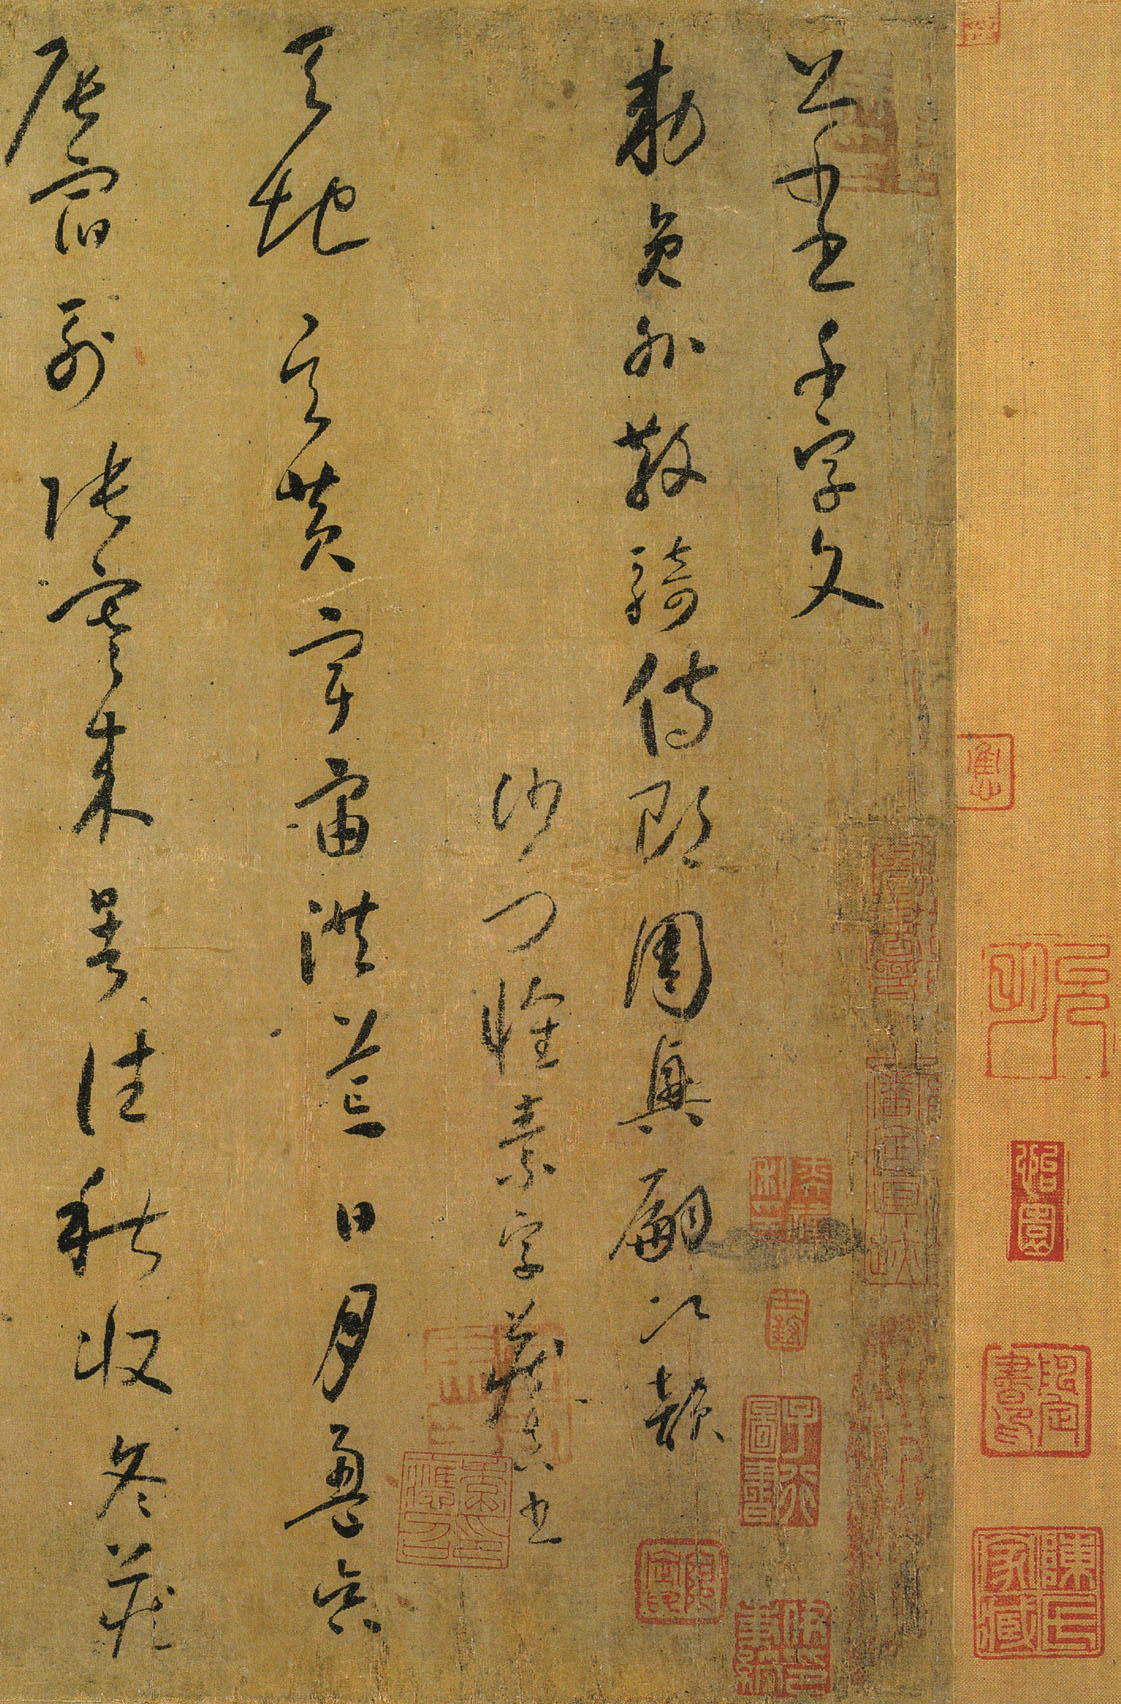 草書千字文
勅員外散騎侍郎周興嗣次韻
沙門懷素字藏真書
天地玄黃宇宙洪荒日月盈昃
辰宿列張寒來暑往秋收冬藏
怡園
陳氏家藏